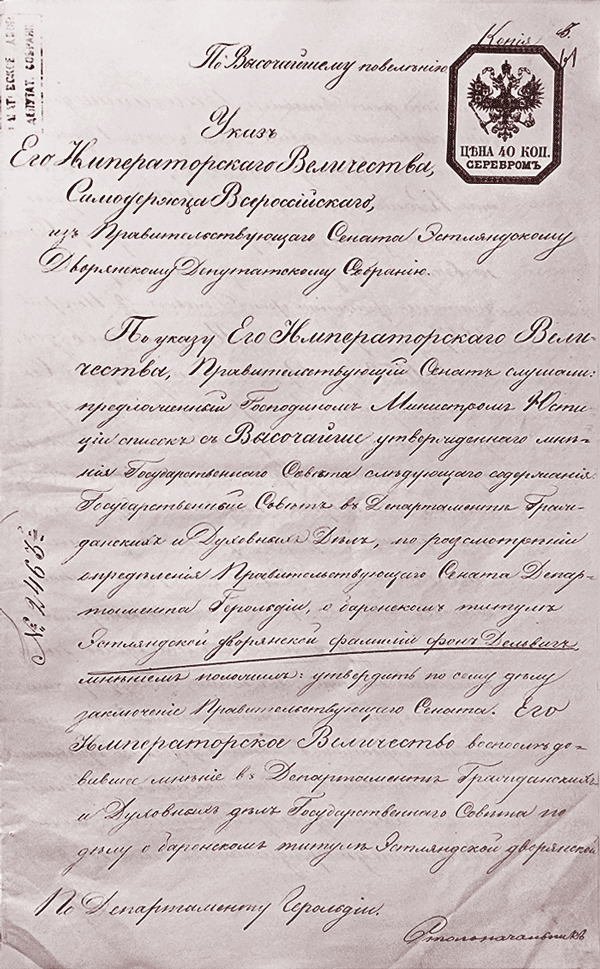 Копія
По Высочайшему повелѣнію
ЦѢНА 40 КОП.
СЕРЕБРОМЪ
ДЕПУТАТ. СОБРАНІ
Указъ
Его Императорскаго Величества,
Самодержца Всероссійскаго,
изъ Правительствующаго Сената Эстляндскому
Дворянскому Депутатскому Собранію.
По указу Его Императорскаго Вели-
чества, Правительствующій Сенатъ слушали:
предложенный Господиномъ Министромъ Юсти-
ціи списокъ съ Высочайше утвержденнаго мнѣ-
нія Государственнаго Совѣта слѣдующаго содержанія:
Государственный Совѣтъ въ Департаментѣ Граж-
данскихъ и Духовныхъ Дѣлъ, по разсмотрѣніи
опредѣленія Правительствующаго Сената Депар-
тамента Герольдіи, о баронскомъ титулѣ
Эстляндской дворянской фамиліи фонъ Дельвигъ,
мнѣніемъ положилъ: утвердить по сему дѣлу
заключеніе Правительствующаго Сената. Его
Императорское Величество воспослѣдо-
вавшее мнѣніе въ Департаментѣ Гражданскихъ
и Духовныхъ дѣлъ Государственнаго Совѣта по
дѣлу о баронскомъ титулѣ Эстляндской дворянской
№ 2465
По Департаменту Герольдіи.
Столоначальникъ